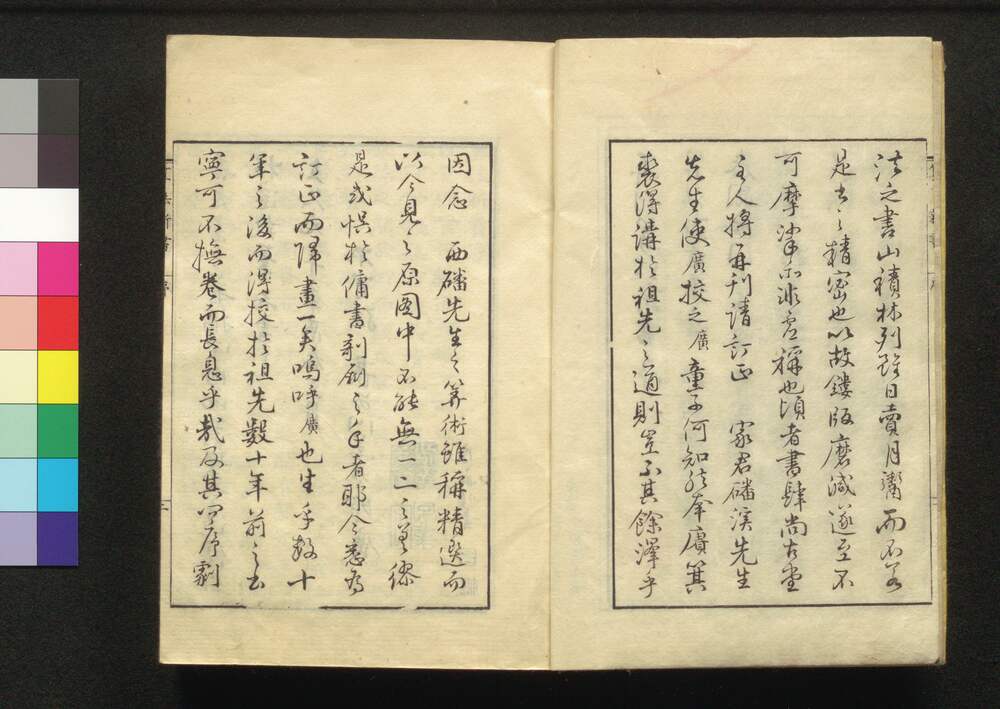 法之書山積林列雖日賣月鬻而不若
是書之精密也以故鏤版磨滅遂至不
可摩挲而非虛稱也頃者書肆尚古堂
主人將再刊請訂正　家君磻溪先生
先生使廣挍之廣童子何知然奉廣箕
裘得講於祖先之道則豈不其餘澤乎
因念　西磻先生之筭術雖稱精選而
以今見之原圖中不能無一二之差繆
是或誤於傭書剞劂之手者耶今悉爲
訂正而歸畫一矣嗚呼廣也生乎數十
年之後而得挍於祖先數十年前之書
寧可不撫卷而長息乎哉及其